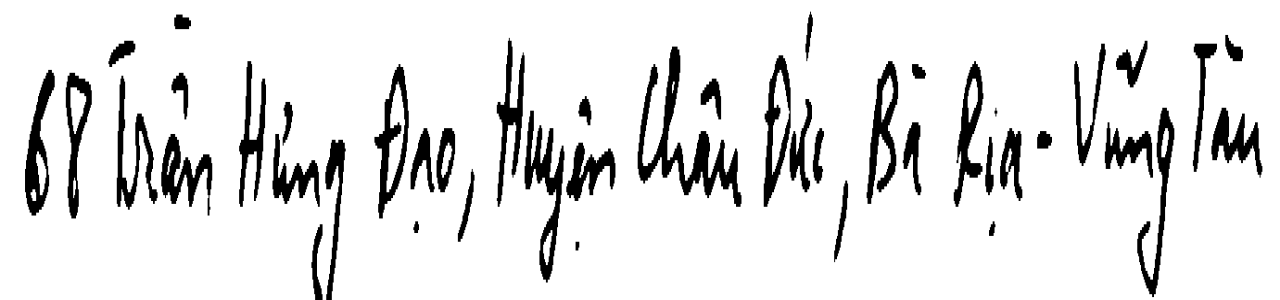 68 Trần Hưng Đạo, Huyện Châu Đức, Bà Rịa - Vũng Tàu